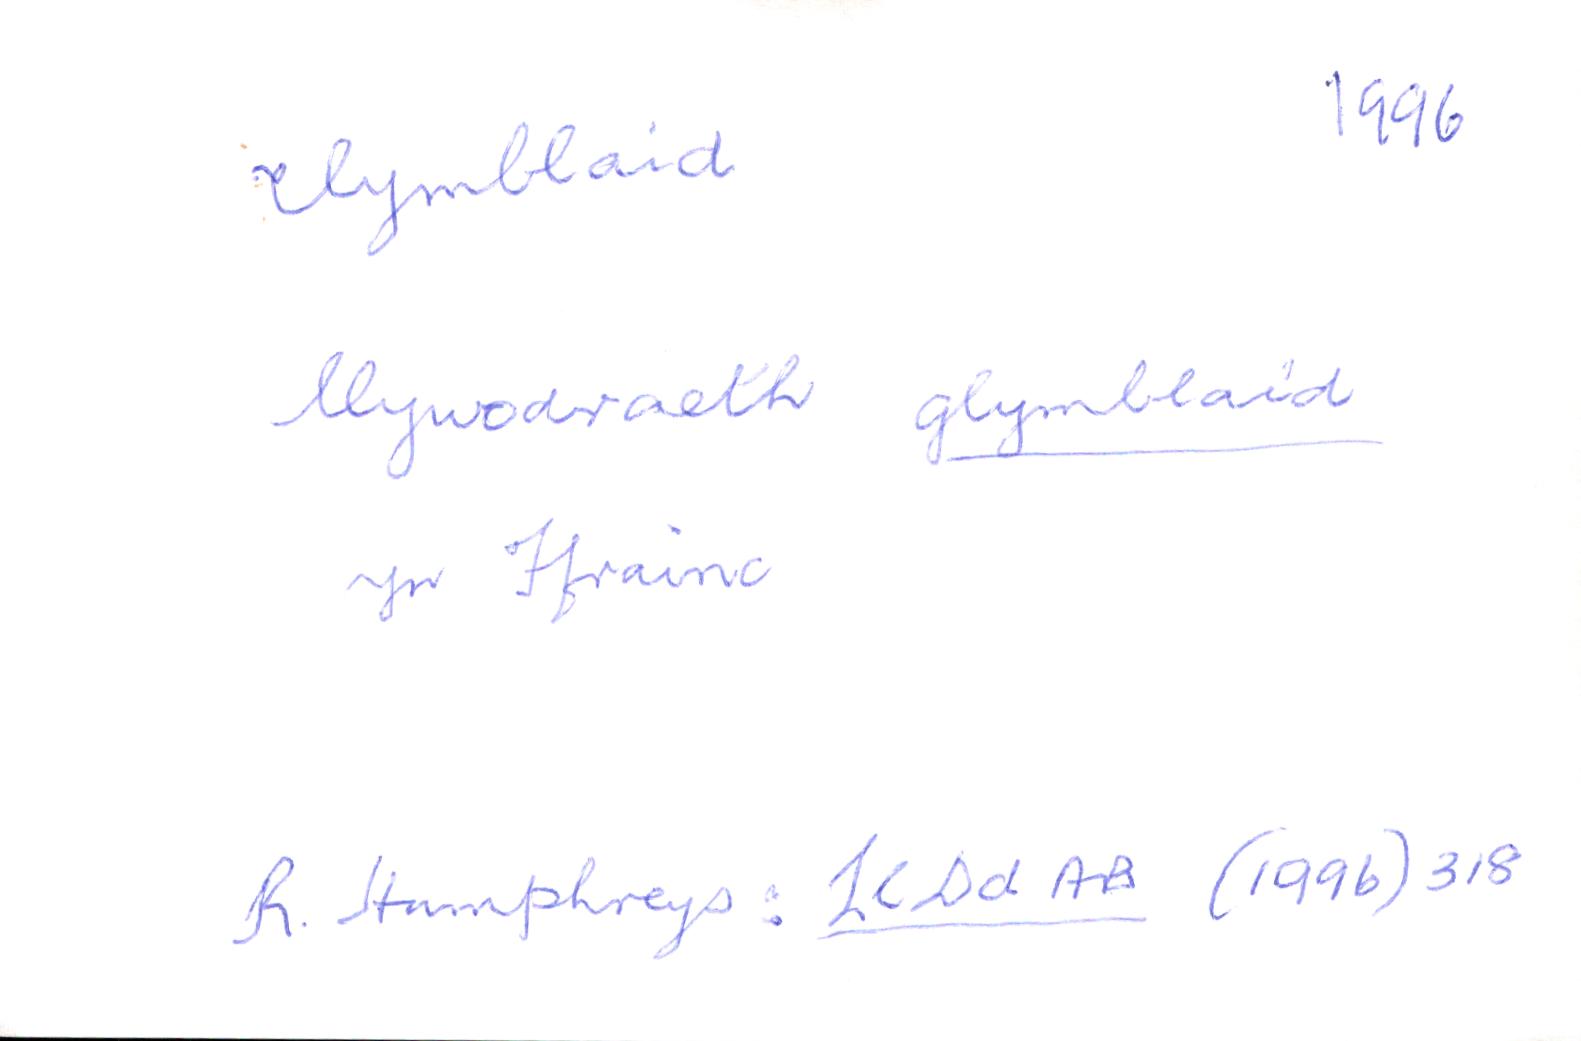 1996
clymblaid
llywodraeth glymblaid
yn Ffrainc
R. Humphreys: LlDdAB (1996) 318